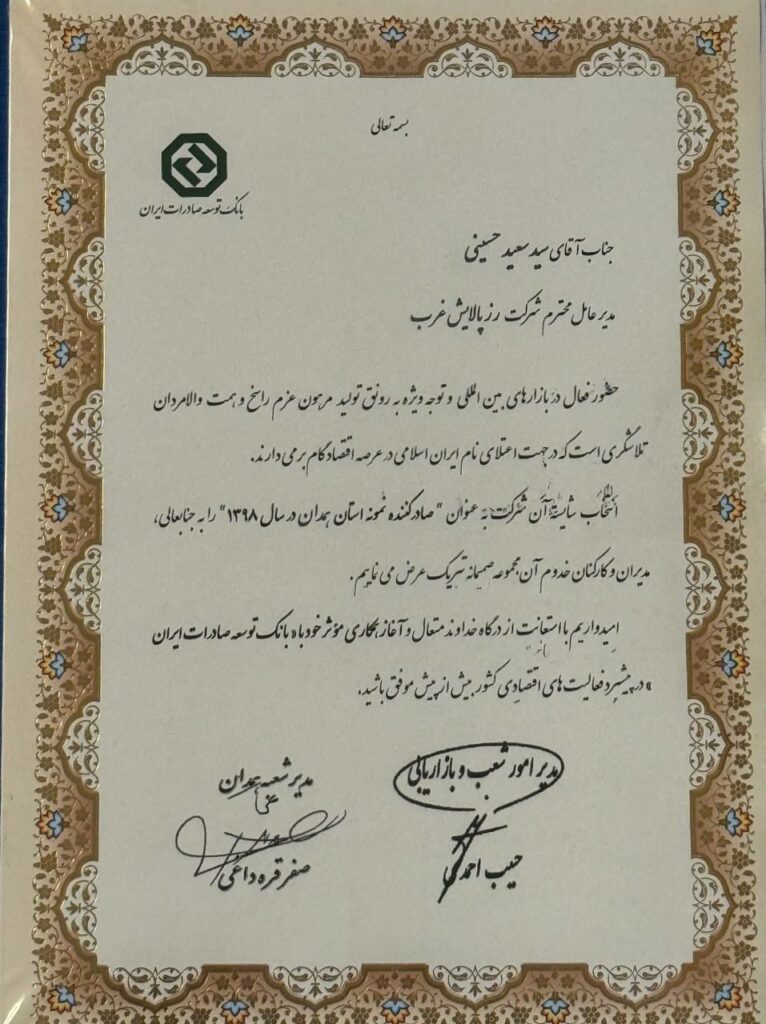 بسمه تعالی
بانک توسعه صادرات ایران
جناب آقای سید سعید حسینی
مدیر عامل محترم شرکت رز پالایش غرب
حضور فعال در بازارهای بین المللی و توجه ویژه به رونق تولید مرهون عزم راسخ و همت والامردان
تلاشگری است که در جهت اعتلای نام ایران اسلامی در عرصه اقتصاد گام برمی دارند.
انتخاب شایسته آن شرکت به عنوان "صادرکننده نمونه استان همدان در سال ۱۳۹۸" را به جنابعالی،
مدیران و کارکنان خدوم آن مجموعه صمیمانه تبریک عرض می نماییم.
امیدواریم با استعانت از درگاه خداوند متعال و آغاز همکاری مؤثر خود با « بانک توسعه صادرات ایران
» در پیشبرد فعالیت های اقتصادی کشور بیش از پیش موفق باشید.
مدیر امور شعب و بازاریابی
مدیر شعبه همدان
حبیب احمدی
صفر قره داغی